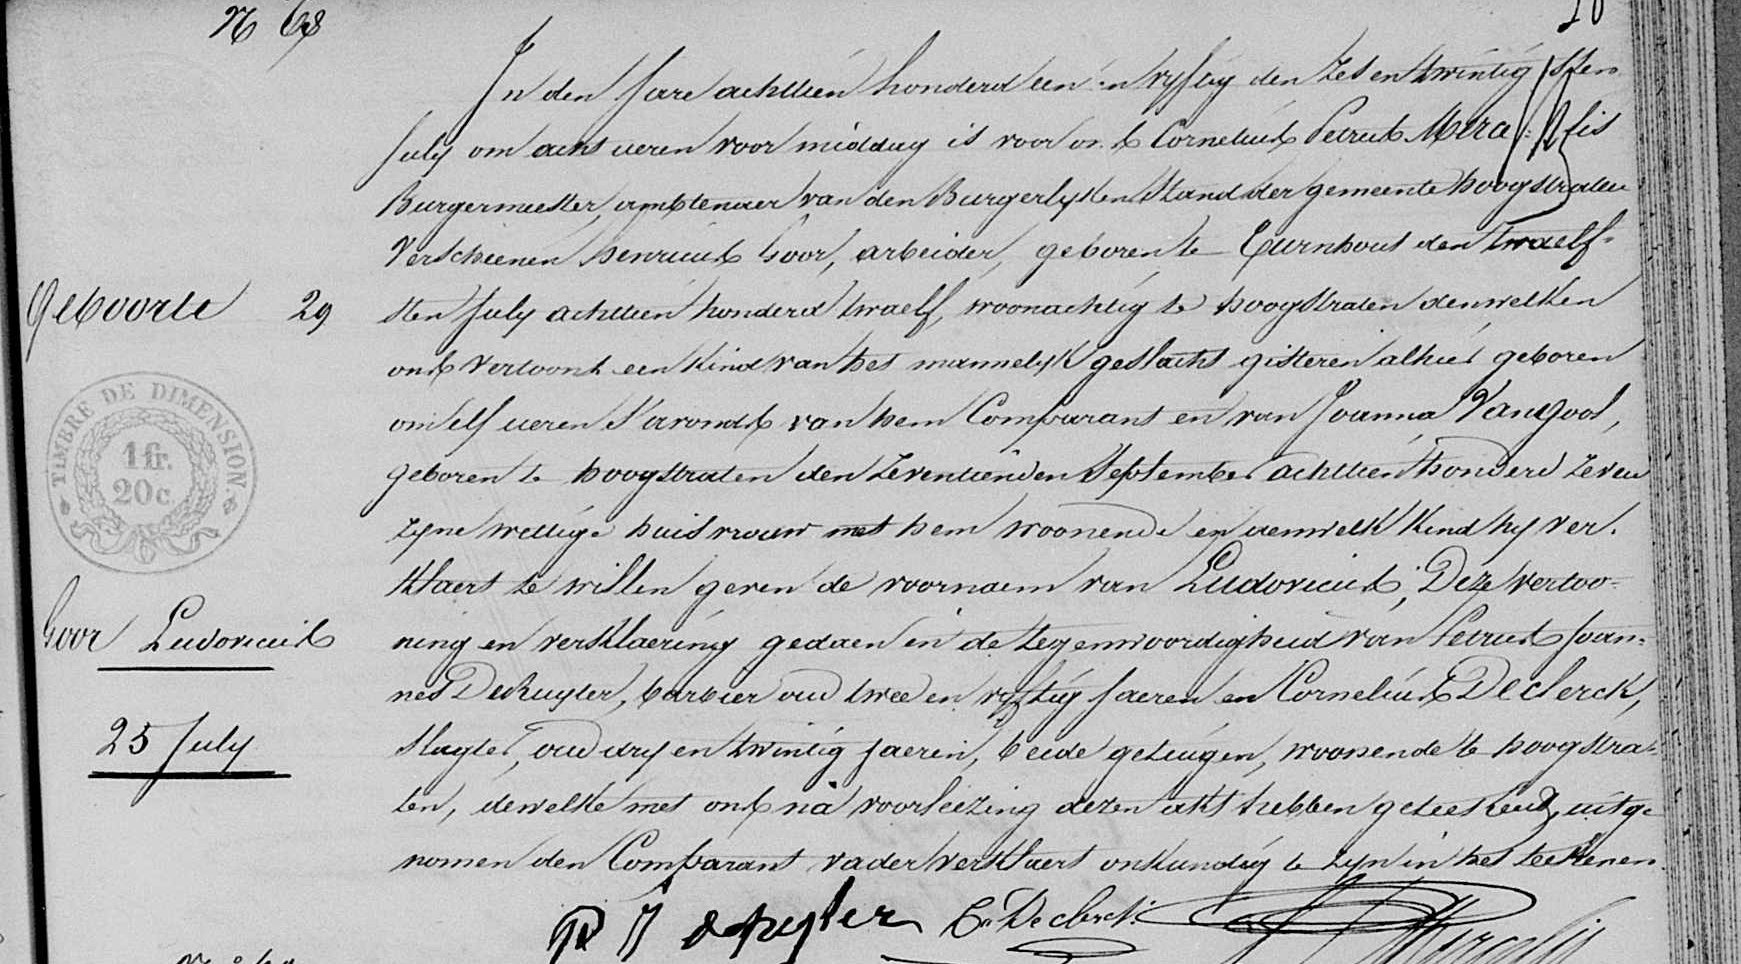 N 68
In den Jare achttien honderd een en vyftig den zes en twintigsten
July om acht ueren voor middag is voor ons Cornelius Petrus Mercelis
Burgermeester, ambtenaer van den Burgerlyken Stand der gemeente hoogstraten
Verscheenen henricus Goor, arbeider, geboren te Turnhout den twaelf-
Geboorte 29 sten July achttien honderd twaelf, woonachtig te hoogstraten denwelken
ons vertoont een kind van het mannelyk geslacht gisteren alhier geboren
TIMBRE DE DIMENSION
1 fr.
20c.
om elf ueren s'avonds van hem Comparant en van Joanna Van Gool,
geboren te hoogstraten den zeventienden September achttien honderd zeven
zyne wettige huisvrouw met hem woonende en aenwelk kind hy ver-
klaert te willen geven de voornaem van Ludovicus; Deze vertoo-
Goor Ludovicus ning en verklaering gedaen in de tegenwoordigheid van Petrus Joan-
nes DeRuyter, barbier oud twee en vyftig jaeren en Cornelius Declerck,
25 July slagter, oud dry en twintig jaeren, beide getuigen, woonende te hoogstra-
ten, dewelke met ons na voorleezing dezen akt hebben geteekend, uitge-
nomen den Comparant vader verklaert onkundig te zyn in het teekenen.
P J deRuyter C. Declerck Mercelis